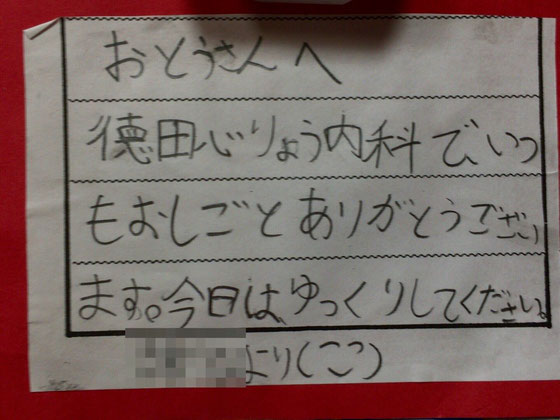 おとうさんへ
徳田しりょう内科で、いつ
もおしごとありがとうござい
ます。今日は、ゆっくりしてください。
より(ここ)